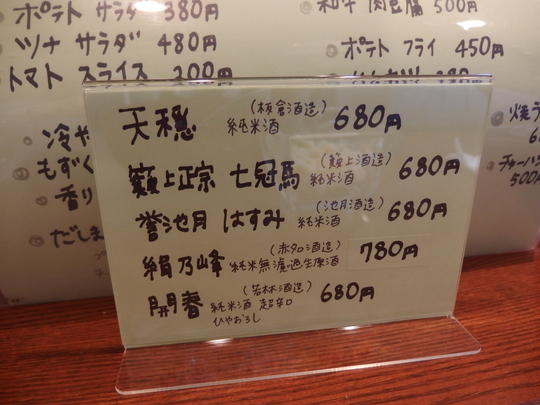 ポテト サラダ 380円
ツナ サラダ 480円
トマト スライス 300円
和牛 肉豆腐 500円
ポテト フライ 450円
冷や
もずく
香り
だしま
焼う
チャーハン
500円
天穏 (板倉酒造) 純米酒 680円
簸上正宗 七冠馬 (簸上酒造) 純米酒 680円
誉池月 はすみ (池月酒造) 純米酒 680円
絹乃峰 (赤名酒造) 純米無濾過生原酒 780円
開春 (若林酒造) 純米酒 超辛口 ひやおろし 680円